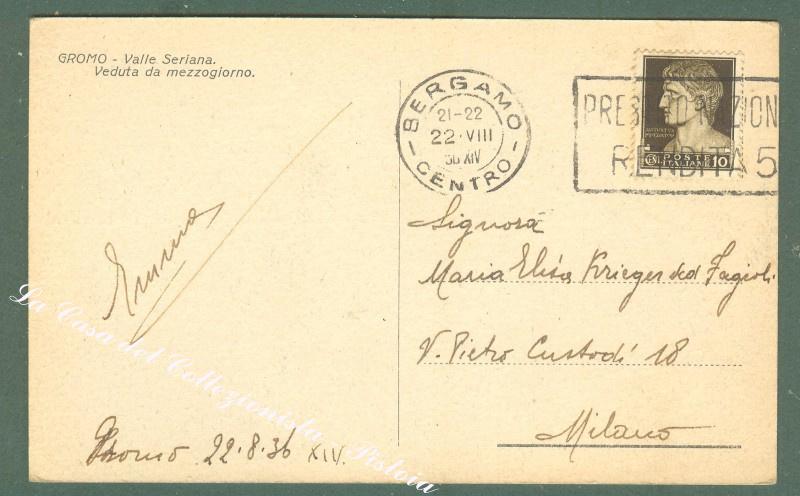 GROMO - Valle Seriana.
Veduta da mezzogiorno.
BERGAMO
21-22
22·VIII
36 XIV
CENTRO
PRES
NAZION
RENDITA 5
POSTE
ITALIANE
10
Emma
Signora
Maria Elisa Krieger ved Fagioli
V. Pietro Custodi 18
Milano
Gromo 22.8.36 XIV.
La Casa del Collezionista Pistoia